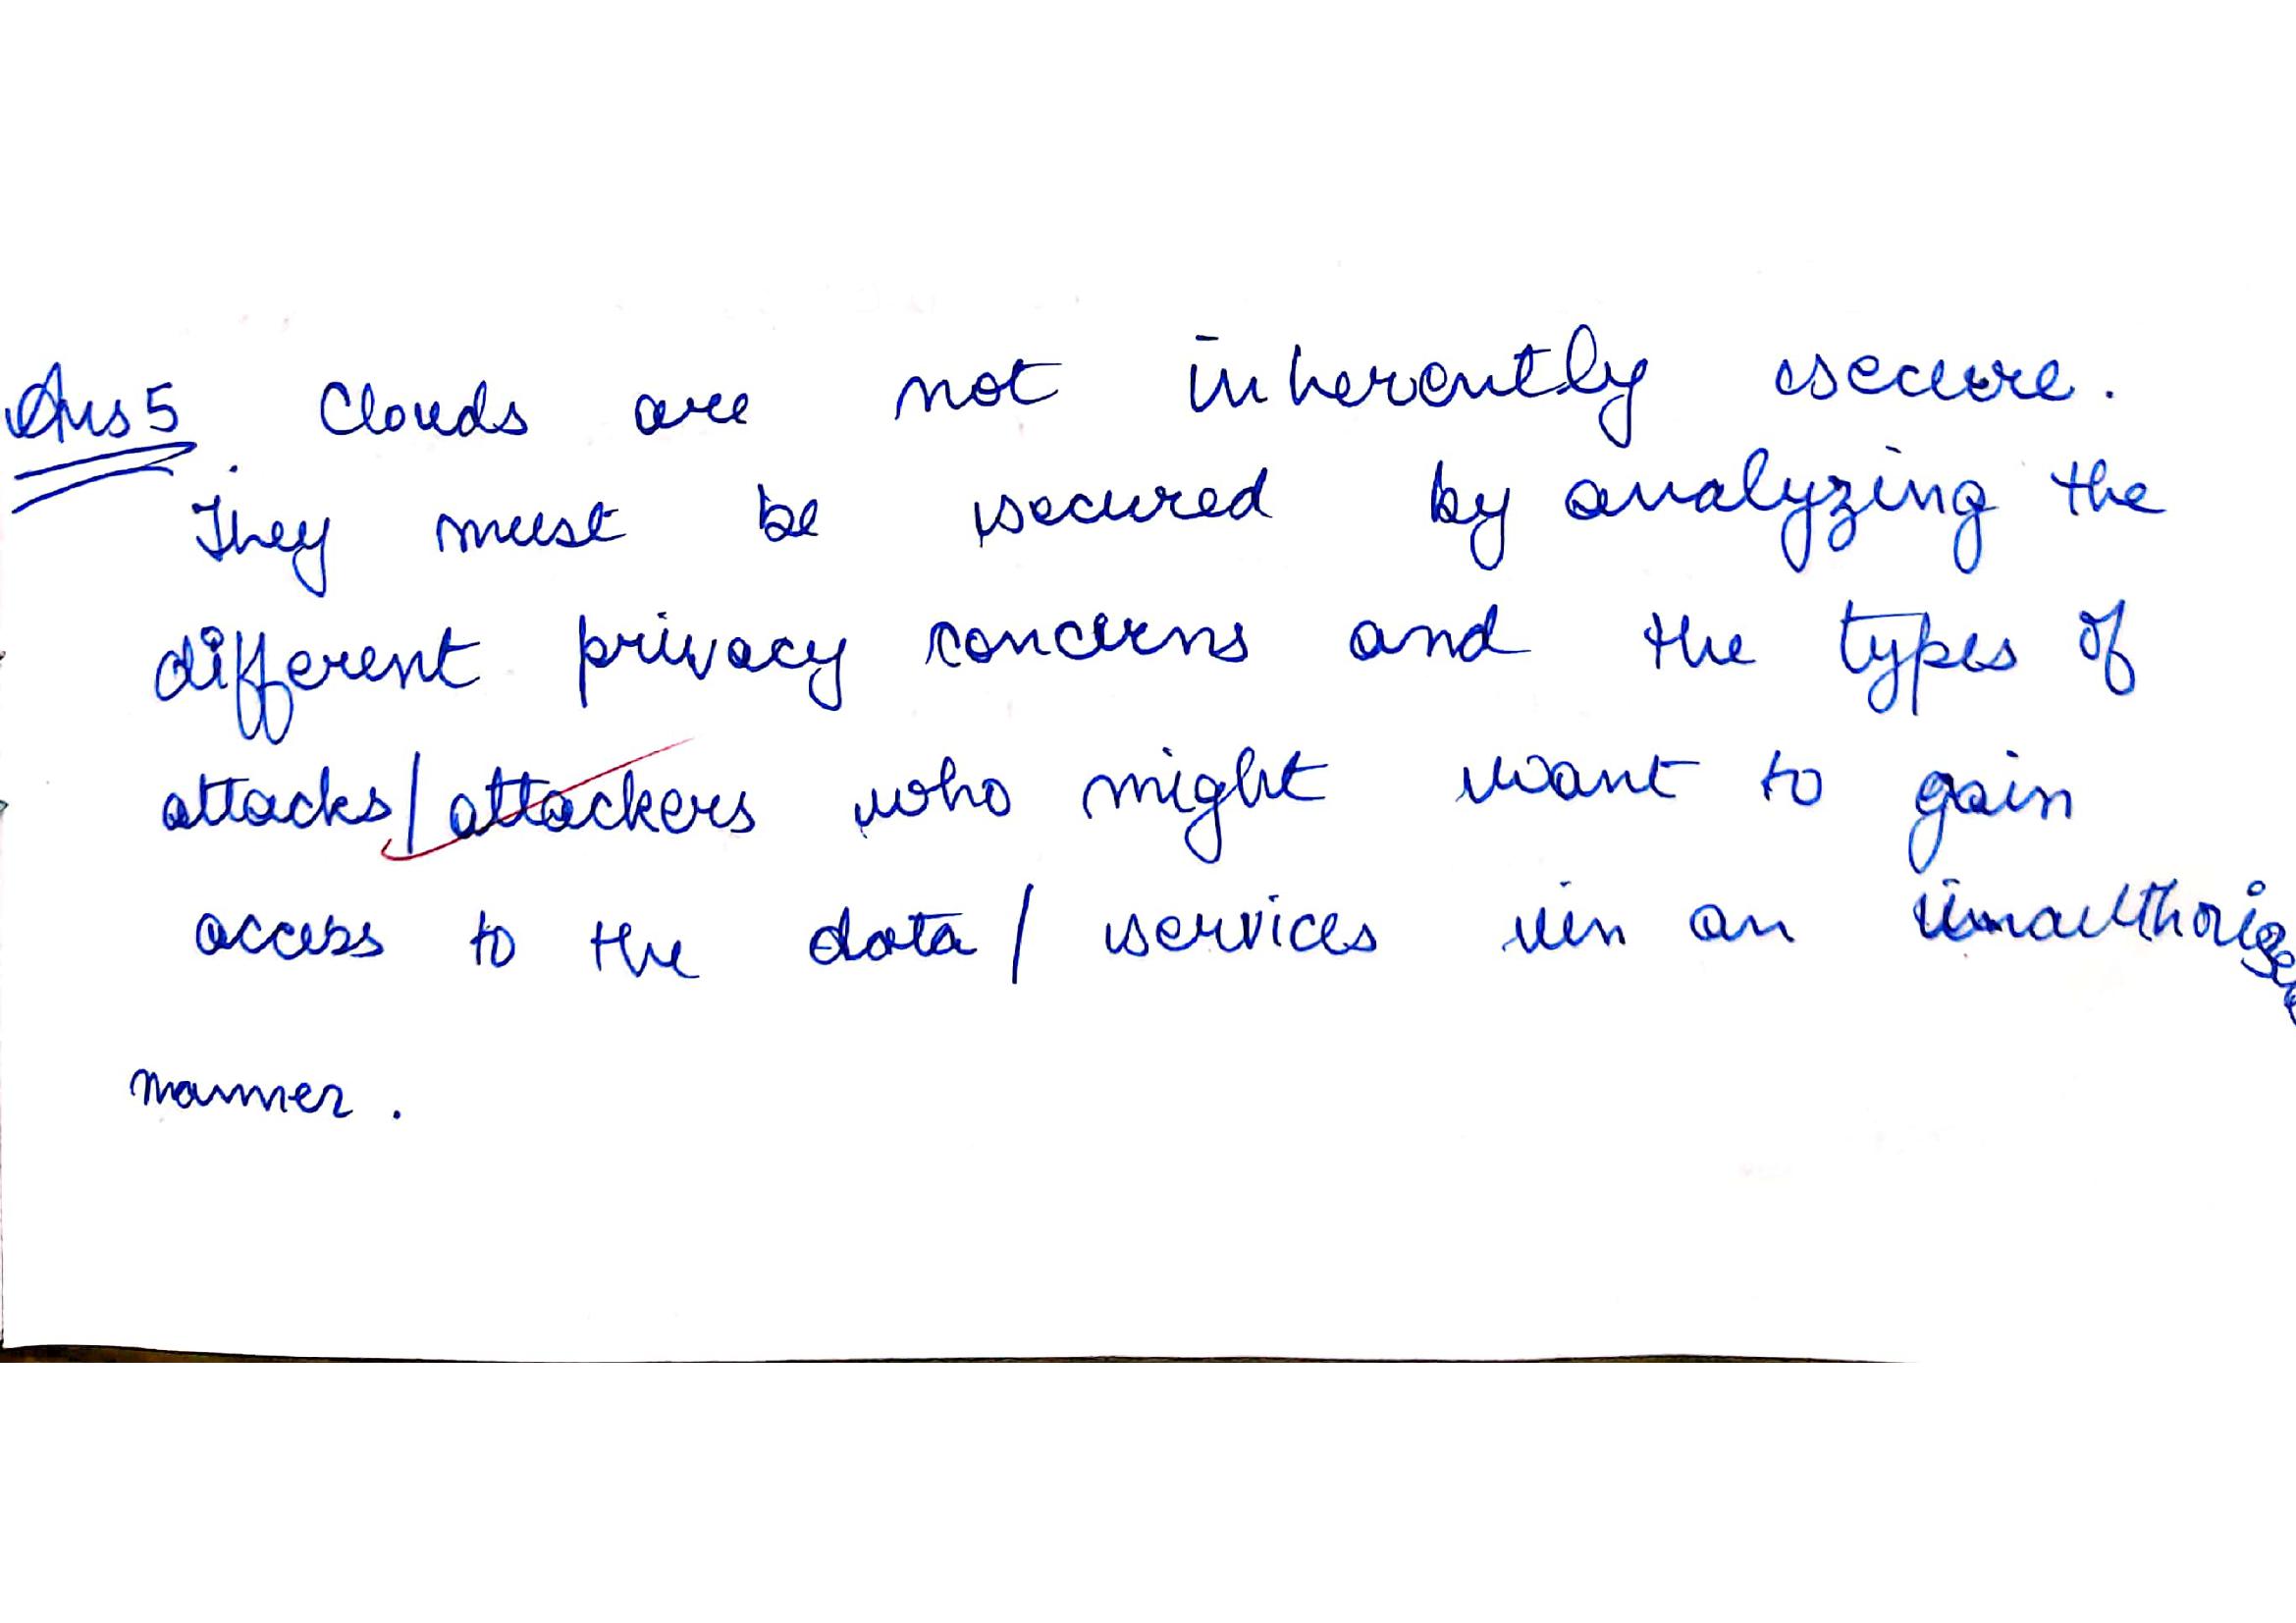 Ans 5. Clouds are not inherently secure.
They must be secured by analyzing the
different privacy concerns and the types of
attacks/attackers who might want to gain
access to the data/services in an unauthorized
manner.